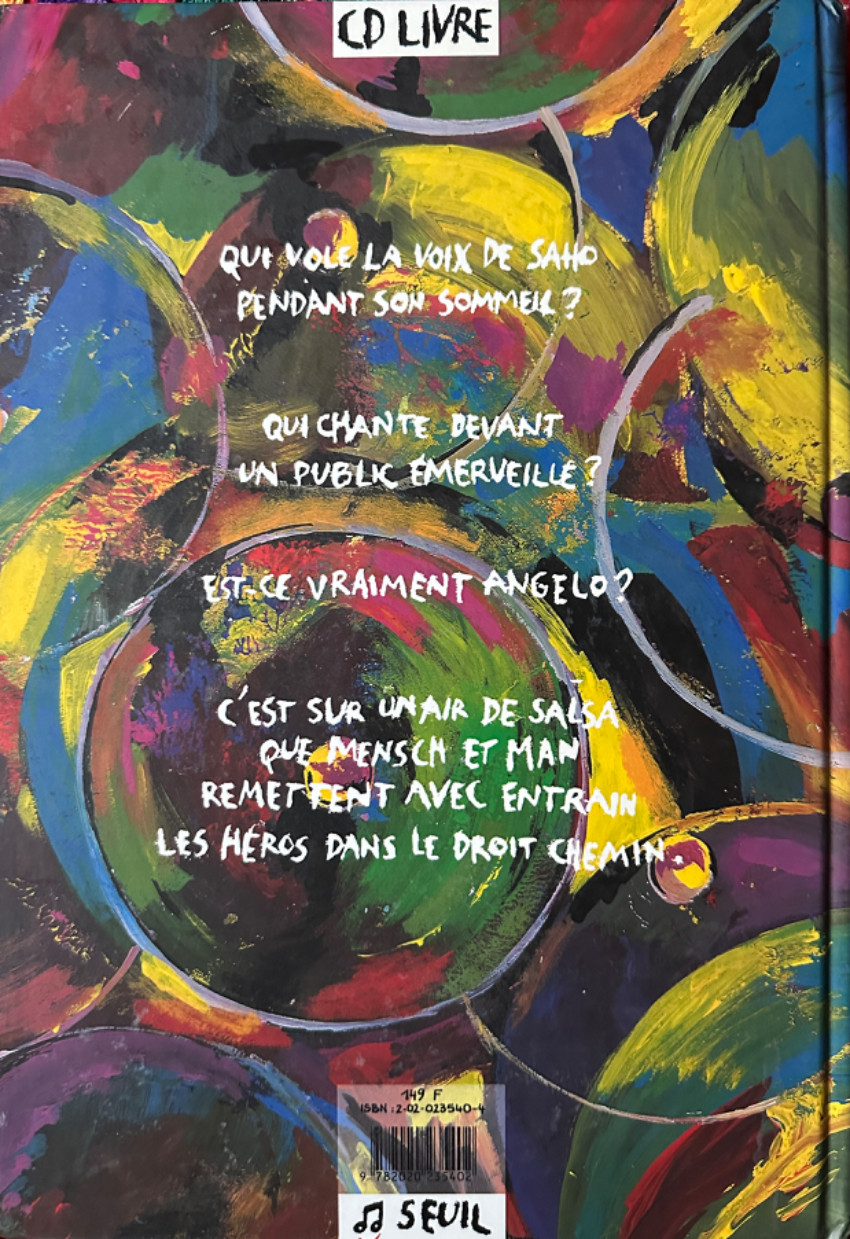 CD LIVRE
QUI VOLE LA VOIX DE SAHO
PENDANT SON SOMMEIL ?
QUI CHANTE DEVANT
UN PUBLIC ÉMERVEILLÉ ?
EST-CE VRAIMENT ANGELO ?
C'EST SUR UN AIR DE SALSA
QUE MENSCH ET MAN
REMETTENT AVEC ENTRAIN
LES HÉROS DANS LE DROIT CHEMIN.
149 F
ISBN : 2-02-023540-4
9 782020 235402
SEUIL